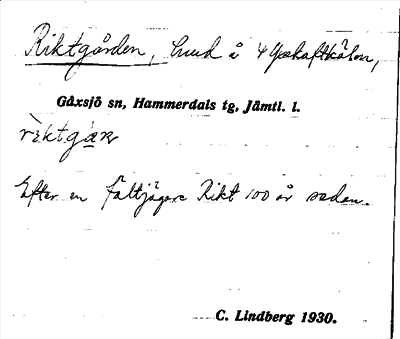 Riktgården, hund å 4 Gåxhaftkölen,
Gåxsjö sn, Hammerdals tg, Jämtl. l.
Efter en fältjägare Rikt 100 år sedan.
C. Lindberg 1930.